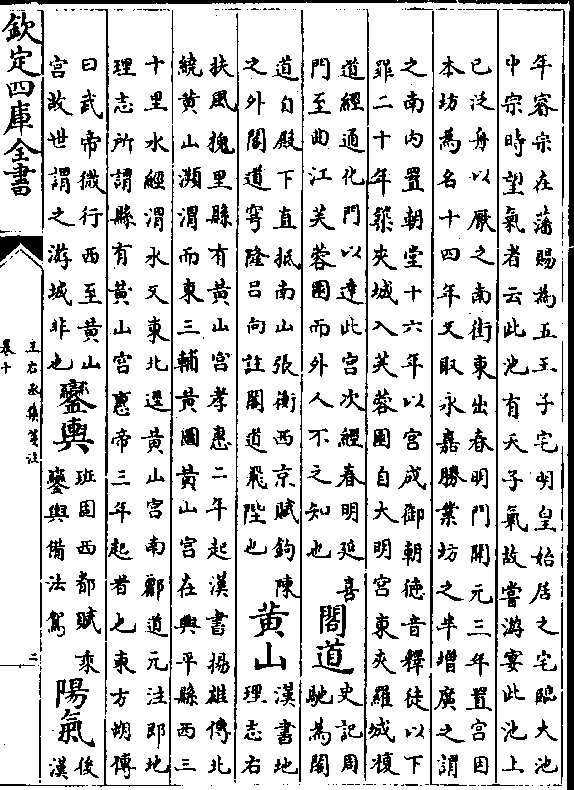 年睿宗在藩賜為五王子宅明皇始居之宅臨大池
中宗時望氣者云此池有天子氣故嘗游宴此池上
已泛舟以厭之南街東出春明門開元三年置宮因
本坊為名十四年又取永嘉勝業坊之半增廣之謂
之南内置朝堂十六年以宮成御朝徳音釋徒以下
罪二十年築夾城入芙蓉園自大明宮東夾羅城複
道經通化門以達此宮次經春明延喜
門至曲江芙蓉園而外人不之知也
閣道
史記周
馳為閣
道自殿下直抵南山張衡西京賦鉤陳
之外閣道穹隆吕向註閣道飛陛也
黄山
漢書地
理志右
扶風槐里縣有黄山宮孝惠二年起漢書揚雄傳北
繞黄山瀕渭而東三輔黄圖黄山宮在興平縣西三
十里水經渭水又東北逕黄山宮南酈道元注即地
理志所謂縣有黄山宮惠帝三年起者之東方朔傳
曰武帝微行西至黄山
宮故世謂之游城非也
鑾輿
班固西都賦乘
鑾輿備法駕
陽氣
後
漢
欽定四庫全書
王右丞集箋注
卷十
二